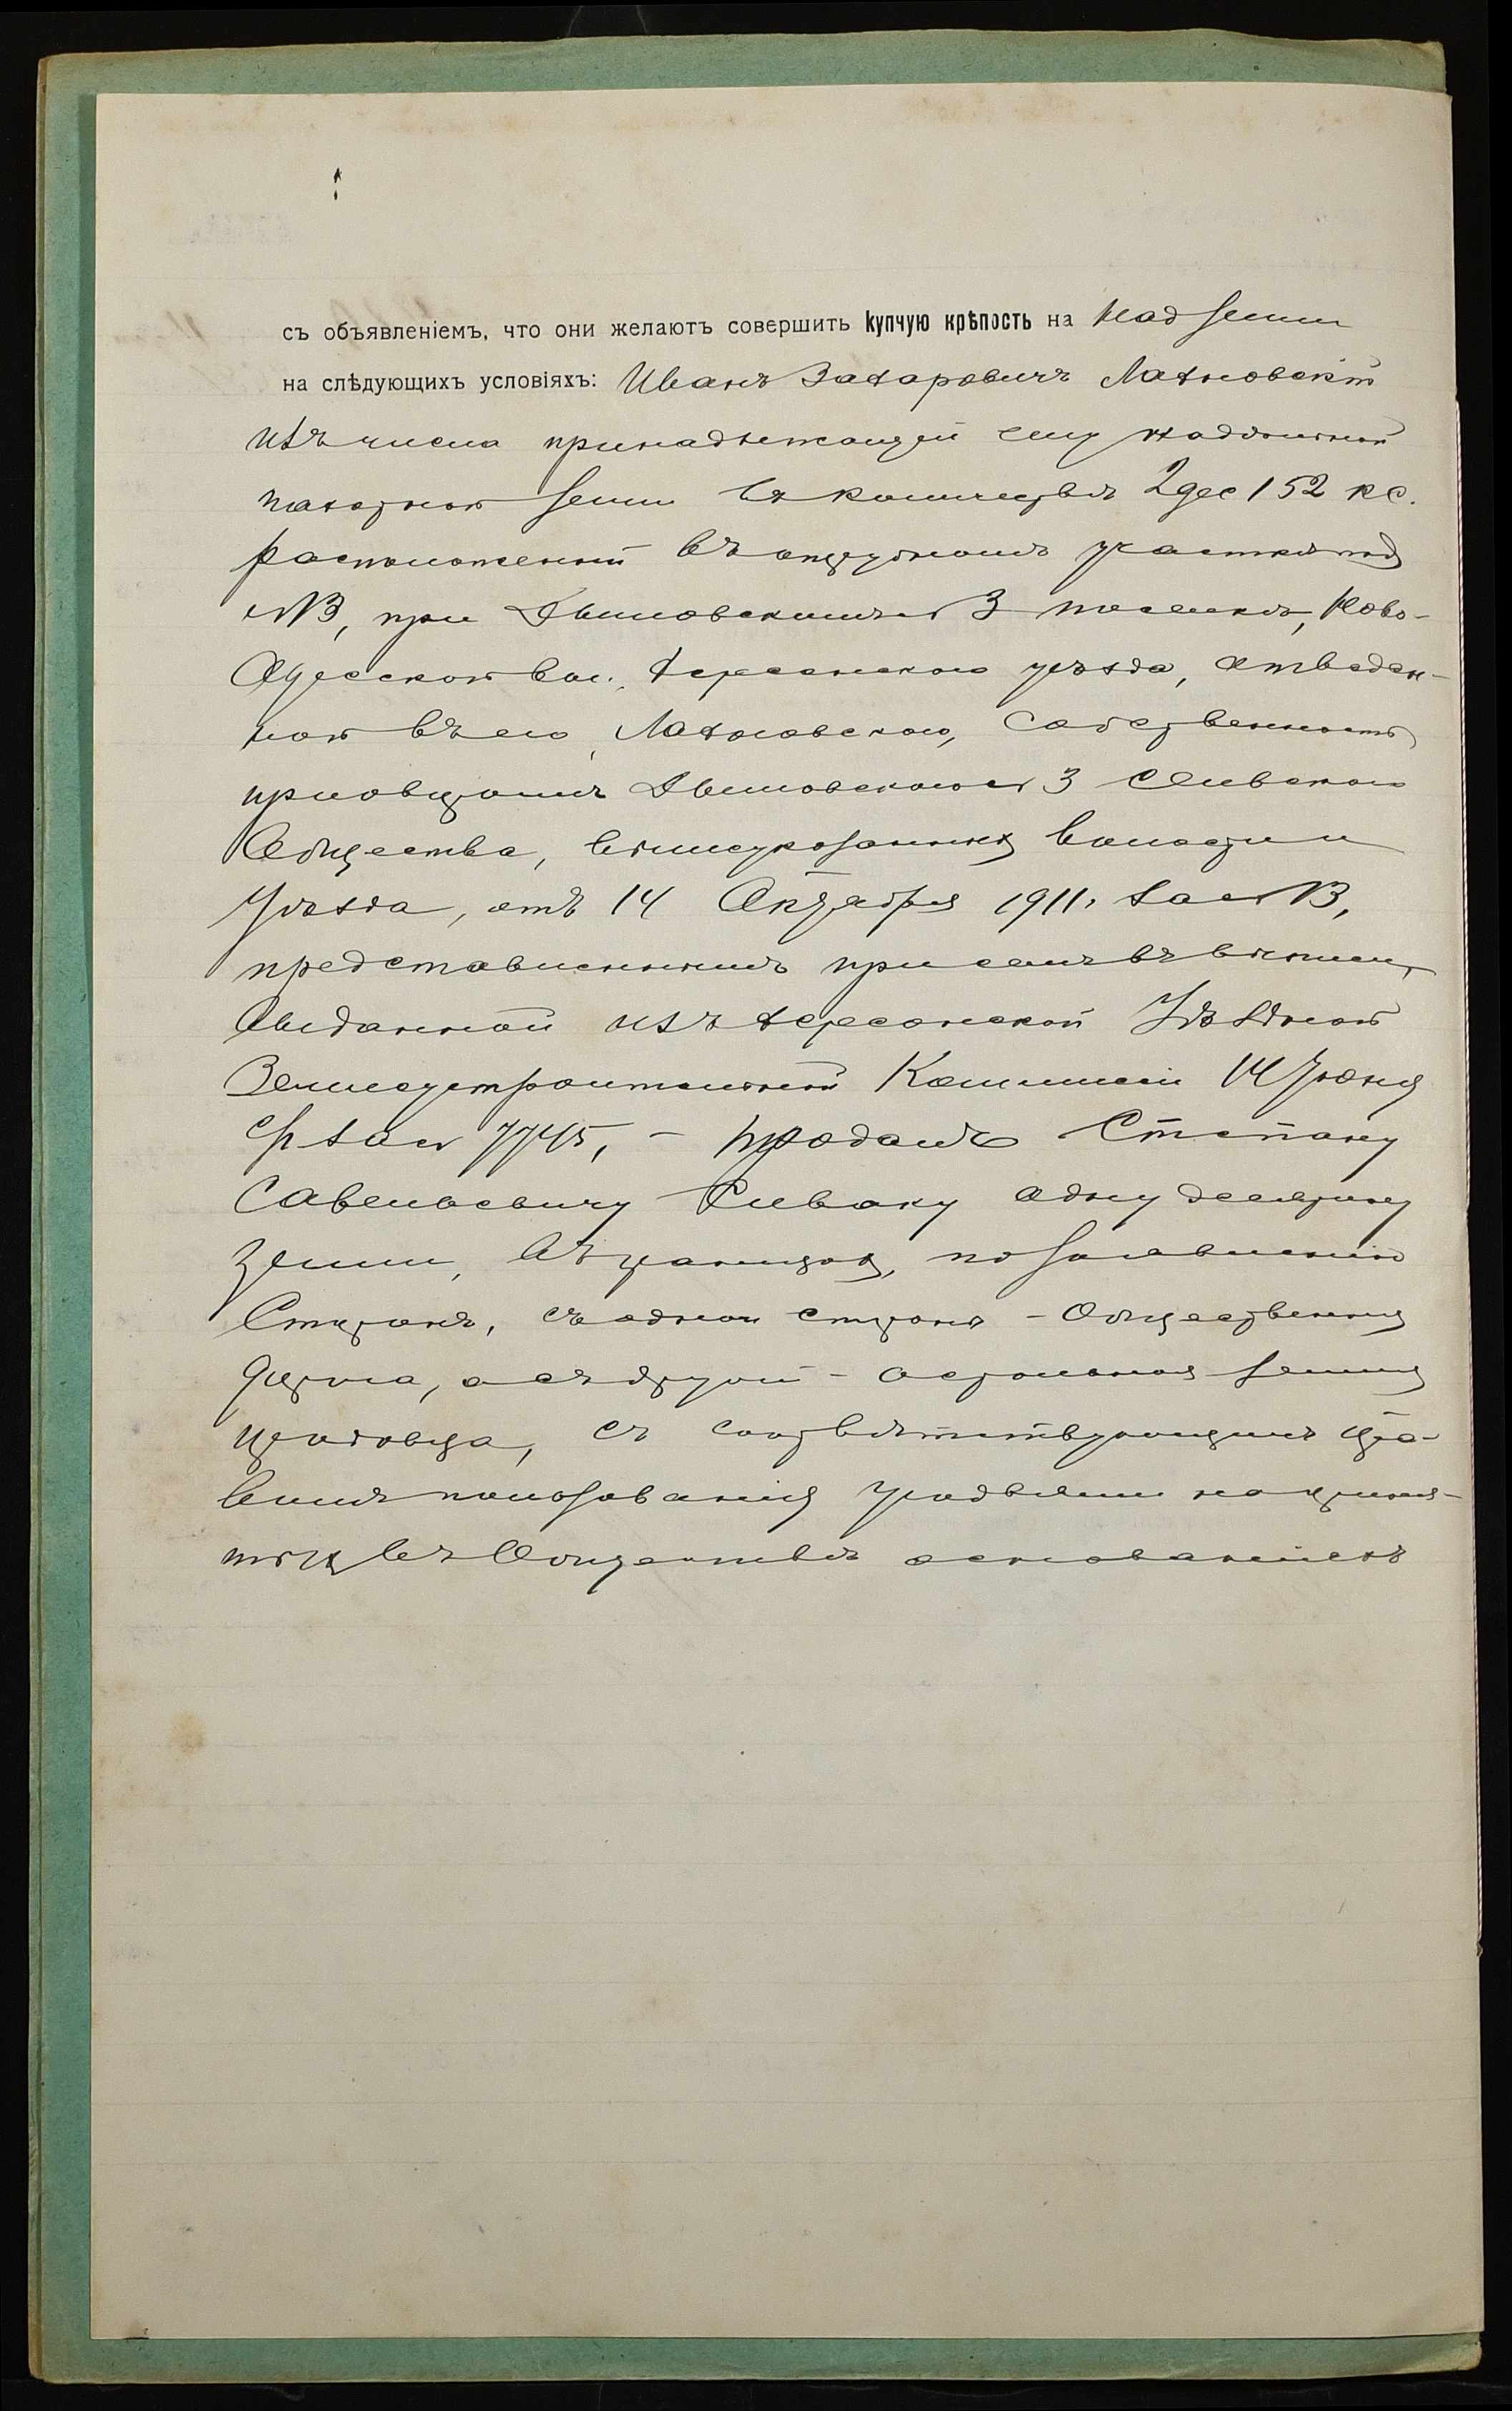 съ объявленіемъ, что они желаютъ совершить купчую крѣпость на над земли
на слѣдующихъ условіяхъ: Иванъ Захаровичъ Лахновскій
изъ числа принадлежащей ему надѣльной
пахотной земли въ количествѣ 2 дес 152 кс.
расположенной въ отрубномъ участкѣ под
№ 13, при Дымовскомъ № 3 поселкѣ, Ново-
Одесской вол., Херсонскаго уѣзда, отведен-
ной въ его, Лахновскаго, собственность
приговоромъ Дымовскаго № 3 сельскаго
Общества, вышеуказанныхъ волости и
Уѣзда, отъ 14 Октября 1911, за № 13,
представленнымъ при семъ въ выписи,
выданной изъ Херсонской Уѣздной
Землеустроительной Комиссіи 14 Іюня
с/г за № 7745, - продалъ Степану
Савельевичу Сиваку одну десятину
земли, въ границахъ, по заявленію
Сторонъ, съ одной стороны - Общественная
дорога, а съ другой - остальная земля
продавца, съ соотвѣтствующимъ пра-
вомъ пользованія угодьями на приня-
тыхъ въ Обществѣ основаніяхъ